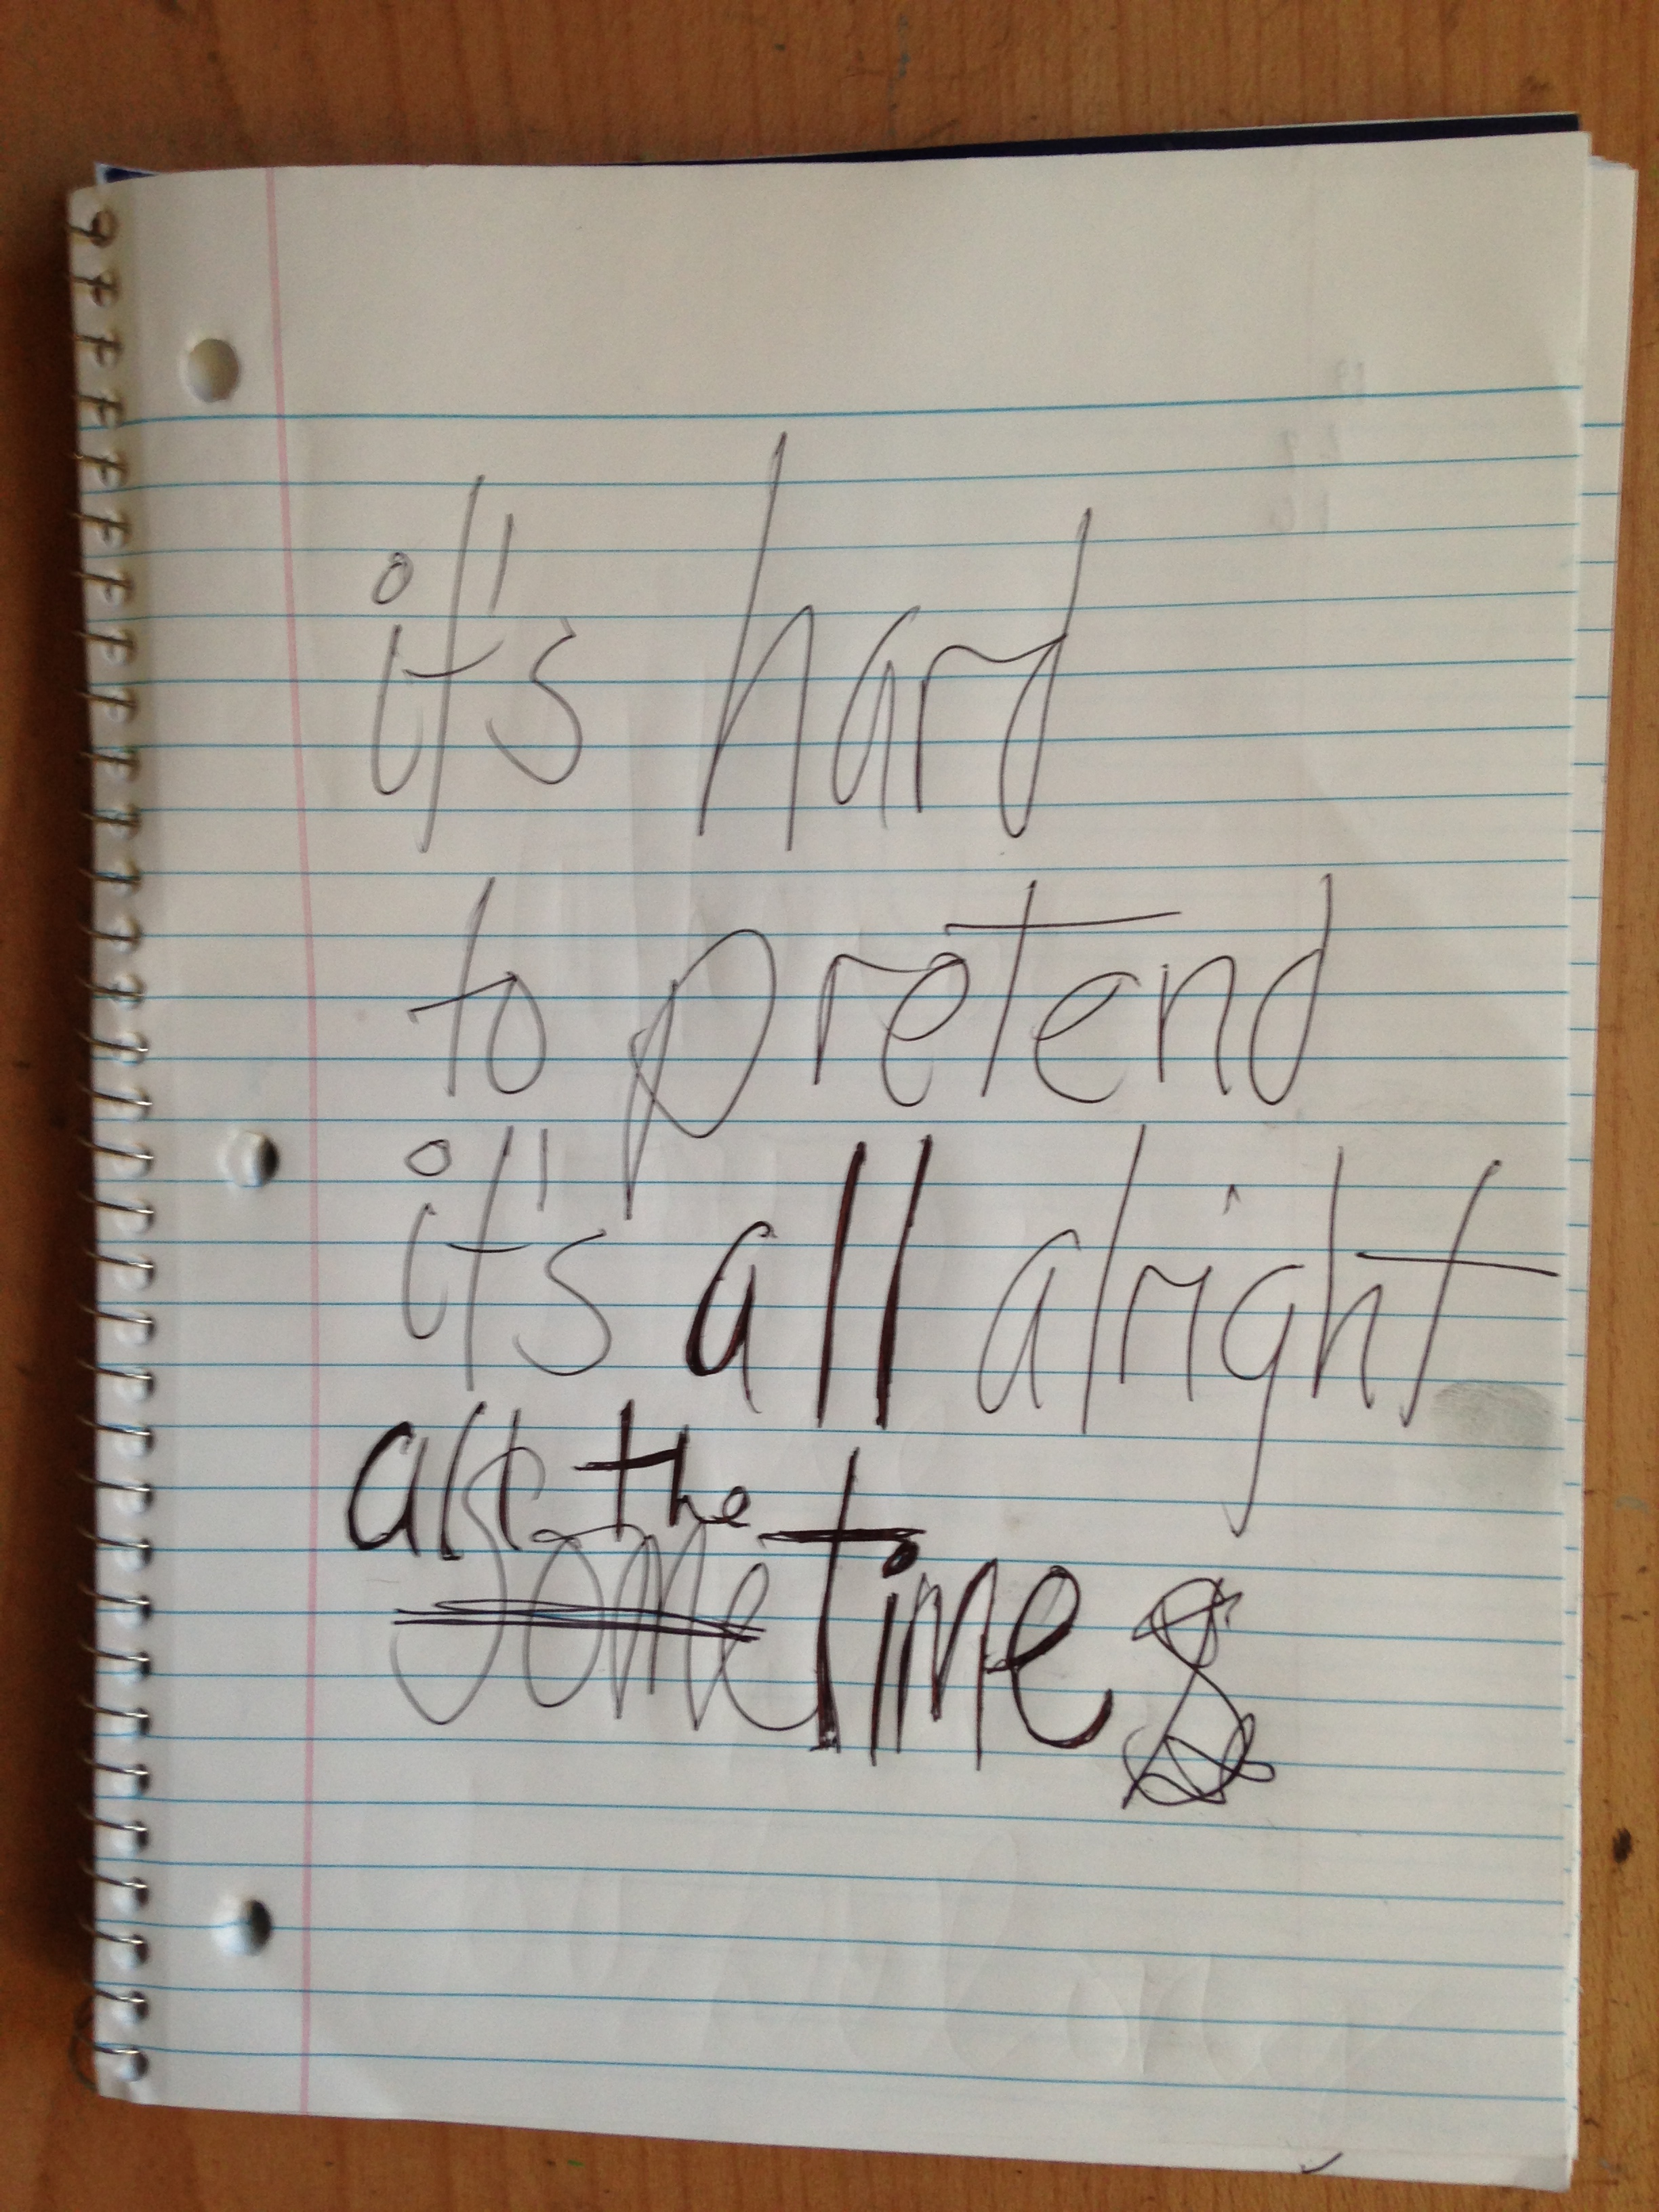 it's hard
to pretend
it's all alright
all the
sometimes